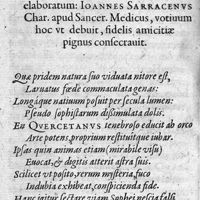 elaboratum: IOANNES SARRACENVS
Char. apud Sancer. Medicus, votiuum
hoc vt debuit, fidelis amicitiæ
pignus consecrauit.
Quæ pridem natura suo viduata nitore est,
Laruatus fœde commaculata genas:
Longique natiuum posuit per secula lumen:
Pseudo sophistarum dissimulata dolis.
En QVERCETANVS tenebroso educit ab orco
Arte potens, proprium restituitque iubar.
Ipsas quin animas etiam (mirabile visu)
Euocat, & digitis alterit astra suis.
Scilicet vt posito, rerum mysteria, fuco
Indubia exhibeat, conspicienda fide.
Hanc igitur sectare viam Sophei nescia falsi